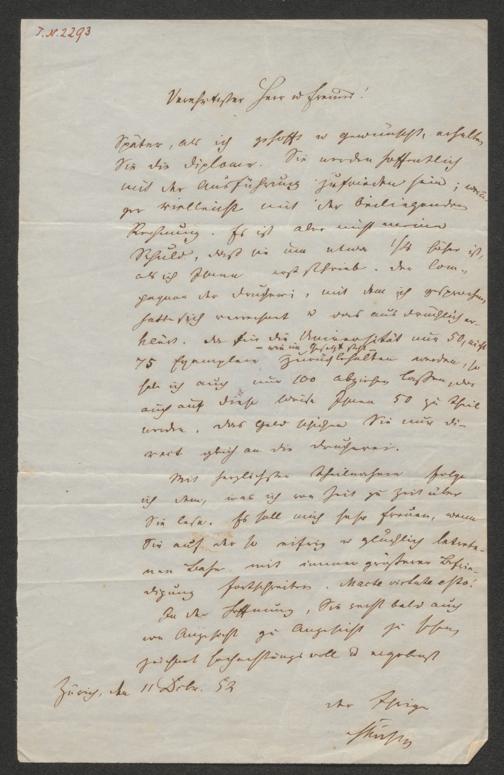 T.N. 2293
Verehrtester Herr u Freund!
Später, als ich gehofft u gewünscht, erhalten
Sie die Diplome. Sie werden hoffentlich
mit der Ausführung zufrieden sein; weni-
ger vielleicht mit der beiliegenden
Rechnung. Es ist aber nicht meine
Schuld, dass sie um etwa 1/4 höher ist,
als ich Ihnen erst schrieb. Der Com-
pagnon der Druckerei, mit dem ich gesprochen,
hatte sich verrechnet u das ausdrücklich er-
klärt. Da für die Universität nur 50, nicht
– wie im Gesetz steht –
75 Exemplare zurückbehalten werden, so
habe ich auch nur 100 abziehen lassen, da
auch auf diese Weise Ihnen 50 zu Theil
werden. Das Geld schicken Sie nur di-
rect gleich an die Druckerei.
Mit herzlichster Theilnahme folge
ich dem, was ich von Zeit zu Zeit über
Sie lese. Es soll mich sehr freuen, wenn
Sie auf der so eifrig u glücklich betrete-
nen Bahn mit immer größerer Befrie-
digung fortschreiten. Macte virtute esto!
In der Hoffnung, Sie recht bald auch
von Angesicht zu Angesicht zu sehen,
zeichnet hochachtungsvoll u ergebenst
Zürich, den 11 Dcbr. 52
der Ihrige